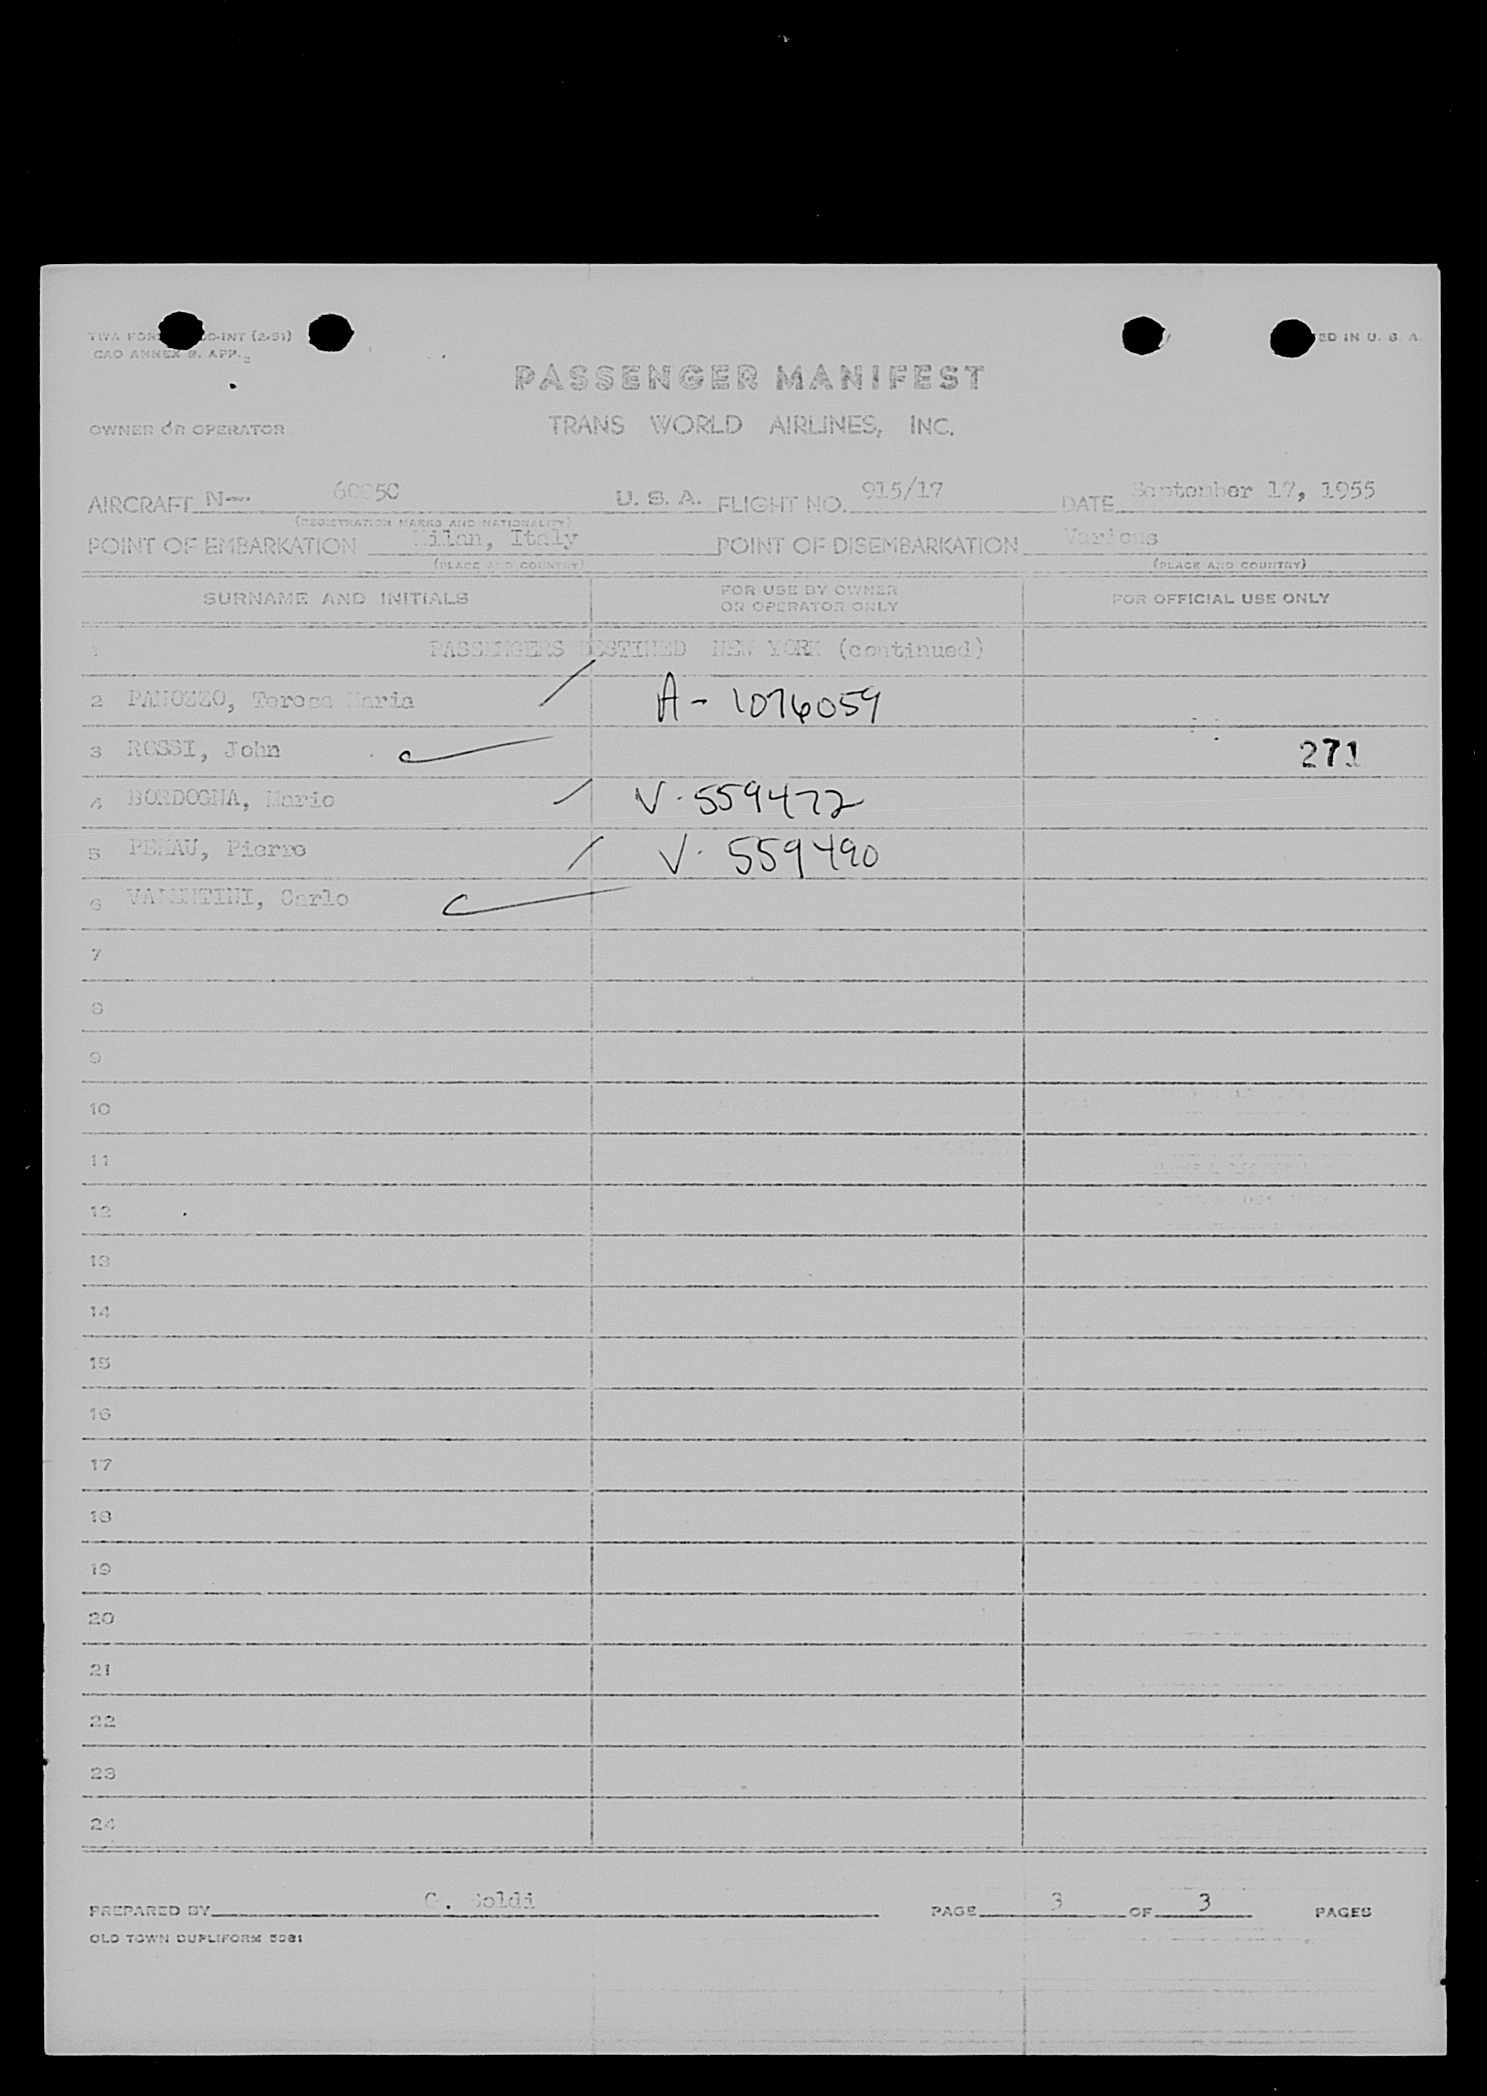 TWA FOR
O-INT (2-51)
ED IN U. S. A.
CAO ANNEX 9. APP.
PASSENGER MANIFEST
OWNER OR OPERATOR
TRANS WORLD AIRLINES, INC.
AIRCRAFT N- U. S. A. FLIGHT NO. 915/17 DATE September 17, 1955
(REGISTRATION MARKS AND NATIONALITY)
POINT OF EMBARKATION Milan, Italy POINT OF DISEMBARKATION Various
(PLACE AND COUNTRY) (PLACE AND COUNTRY)
SURNAME AND INITIALS FOR USE BY OWNER OR OPERATOR ONLY FOR OFFICIAL USE ONLY
1 PASSENGERS DESTINED NEW YORK (continued)
2 PANOZZO, Teresa Maria A-1076059
3 ROSSI, John 271
4 BORDOGNA, Mario V-559472
5 Pierre V-559490
6 Carlo
7
8
9
10
11
12
13
14
15
16
17
18
19
20
21
22
23
24
PREPARED BY PAGE 3 OF 3 PAGES
OLD TOWN DUPLIFORM 5081